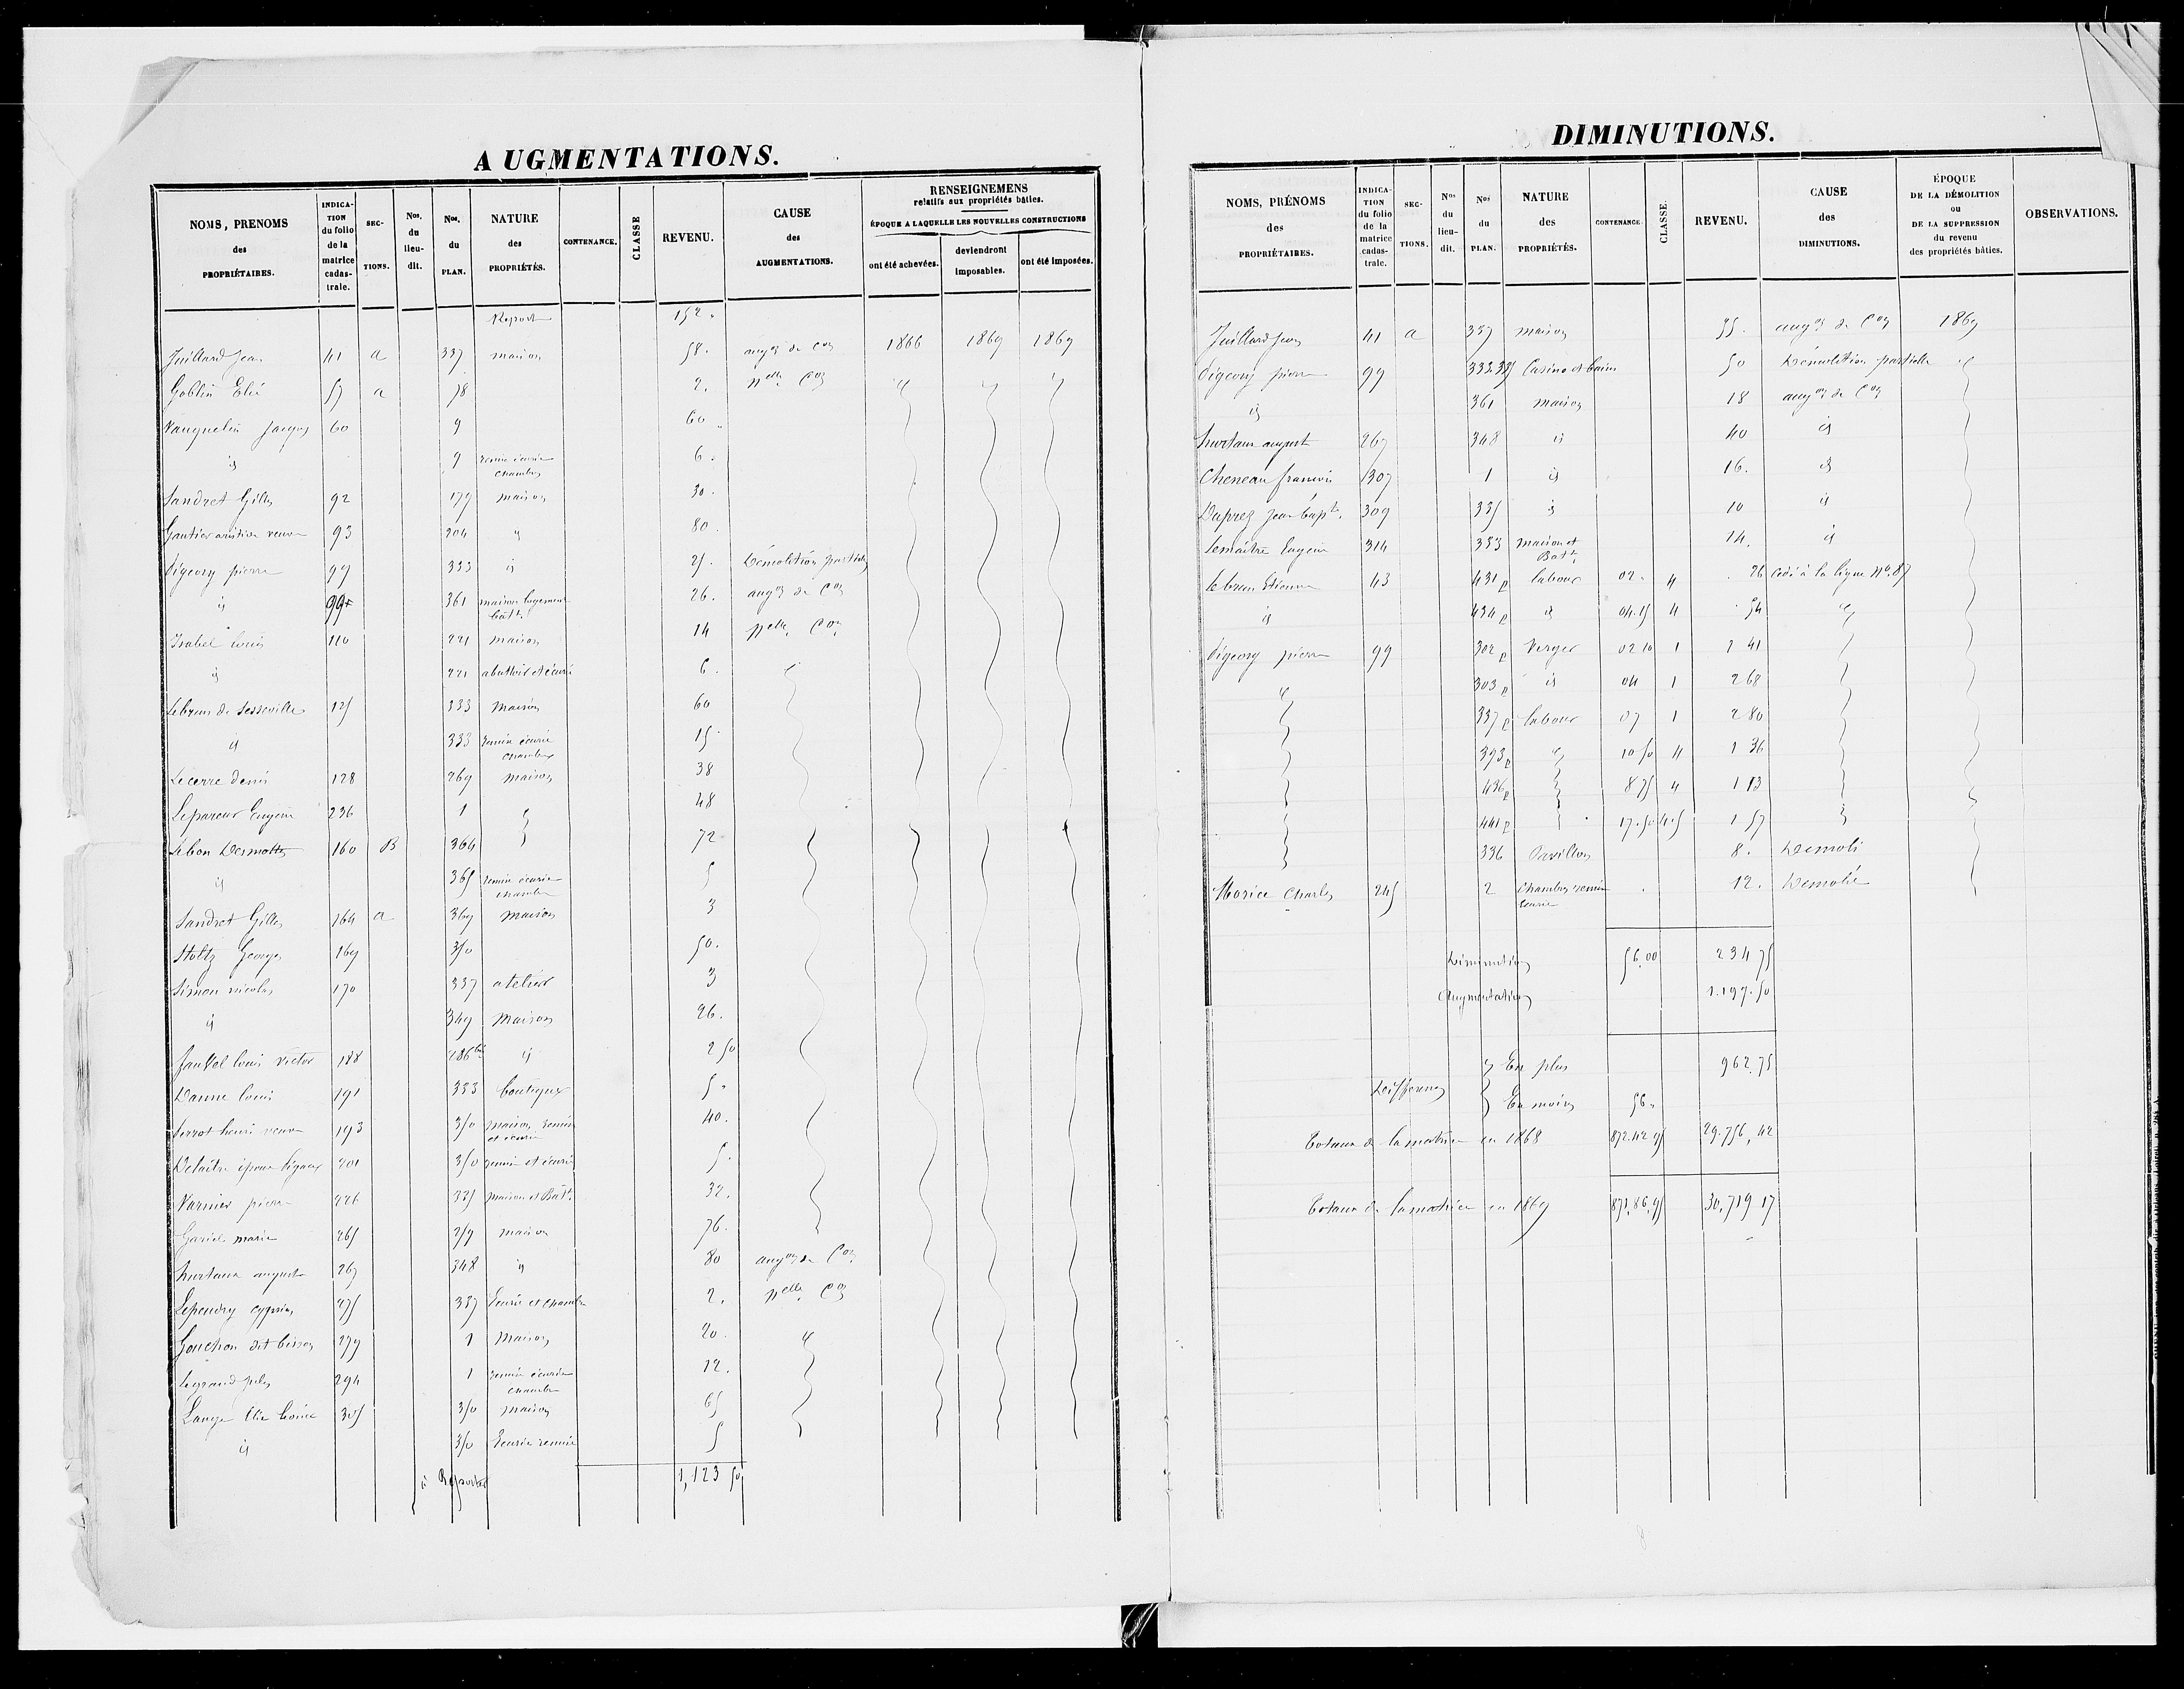 AUGMENTATIONS.
NOMS, PRENOMS des PROPRIÉTAIRES. | INDICATION du folio de la matrice cadastrale. | SECTIONS. | Nos. du lieu-dit. | Nos. du PLAN. | NATURE des PROPRIÉTÉS. | CONTENANCE. | CLASSE | REVENU. | CAUSE des AUGMENTATIONS. | RENSEIGNEMENS relatifs aux propriétés bâties. ÉPOQUE A LAQUELLE LES NOUVELLES CONSTRUCTIONS ont été achevées. | deviendront imposables. | ont été imposées.
Report 152.
Juillard Jean 41 a 337 maison 58. augon de Con 1866 1869 1869
Goblin Elié 57 a 78 2. nelle Con id id id
Vauquelin Jacques 60 9 60
id 9 remise écurie chambres 6.
Sandret Gilles 92 179 maison 30.
Gautier veuve 93 204 id 80.
Pigeory pierre 99 333 id 25. Démolition partielle
id 99 361 maison logement bâtt. 26. augon de Con
Isabel louis 110 221 maison 14 nelle Con
id 221 abattoir et écurie 6. id
Lebrun de Sesseville 125 333 maison 60
id 333 remise écurie chambres 15.
Lecerre denis 128 269 maison 38
Lepareur Eugène 236 1 id 48
Lebon Desmottes 160 B 364 72
id 365 remise écurie chambre 5
Sandret Gilles 164 a 369 maison 3
Stoltz Georges 169 350 50.
Simon nicolas 170 337 atelier 3
id 349 Maison 26.
louis victor 188 286 bis id 2 50
Danne louis 191 333 boutiques 5.
Serrot henri veuve 193 350 maison remise et écurie 40.
Delaitre épouse 201 350 remise et écurie 5.
Varnier pierre 226 335 maison et Bâtt. 32.
Gariel marie 265 259 maison 76.
hurtaux auguste 267 348 id 80 augon de Con
Lepeudry cyprien 275 337 Ecurie et chambre 2. nelle Con
Gouchon dit bisson 279 1 Maison 20. id
Legrand jules 294 1 remise écurie chambre 12.
Lange 305 350 maison 65
id 350 Ecurie remise 5
à Reporter 1,123 50
DIMINUTIONS.
NOMS, PRÉNOMS des PROPRIÉTAIRES. | INDICATION du folio de la matrice cadastrale. | SECTIONS. | Nos du lieu-dit. | Nos du PLAN. | NATURE des PROPRIÉTÉS. | CONTENANCE. | CLASSE. | REVENU. | CAUSE des DIMINUTIONS. | ÉPOQUE DE LA DÉMOLITION ou DE LA SUPPRESSION du revenu des propriétés bâties. | OBSERVATIONS.
Juillard Jean 41 a 337 maison 55. augon de Con 1869
Pigeory pierre 99 Casino et bains 50 Démolition partielle id
id 361 maison 18 augon de Con
hurtaux august 267 348 id 40 id
Cheneau francois 307 1 id 16. id
Duprez Jean bapt. 309 335 id 10 id
Lemaître Eugène 314 333 Maison et Batt. 14. id
Lebrun Etienne 43 431 p labour 02. 4 26 Cédé à la ligne No. 87
id 434 p id 04.15 4 54 id
Pigeory pierre 99 302 p Verger 02 10 1 1 41
id 303 p id 04 1 2 68
337 p labour 07 1 2 80
393 p id 10 50 4 1 36
436 p 8 75 4 1 13
441 p 17.50 4.5 1 57
336 Pavillon 8. Démoli
Morice Charles 245 2 Chambre remise Ecurie 12. Démolie
Diminution 56,00 234 75
Augmentation 1.197.50
Différence { En plus 962.75
En moins 56.
Totaux de la matrice en 1868 872.42.95 29.756,42
Totaux de la matrice en 1869 871.86.95 30,719 17
8